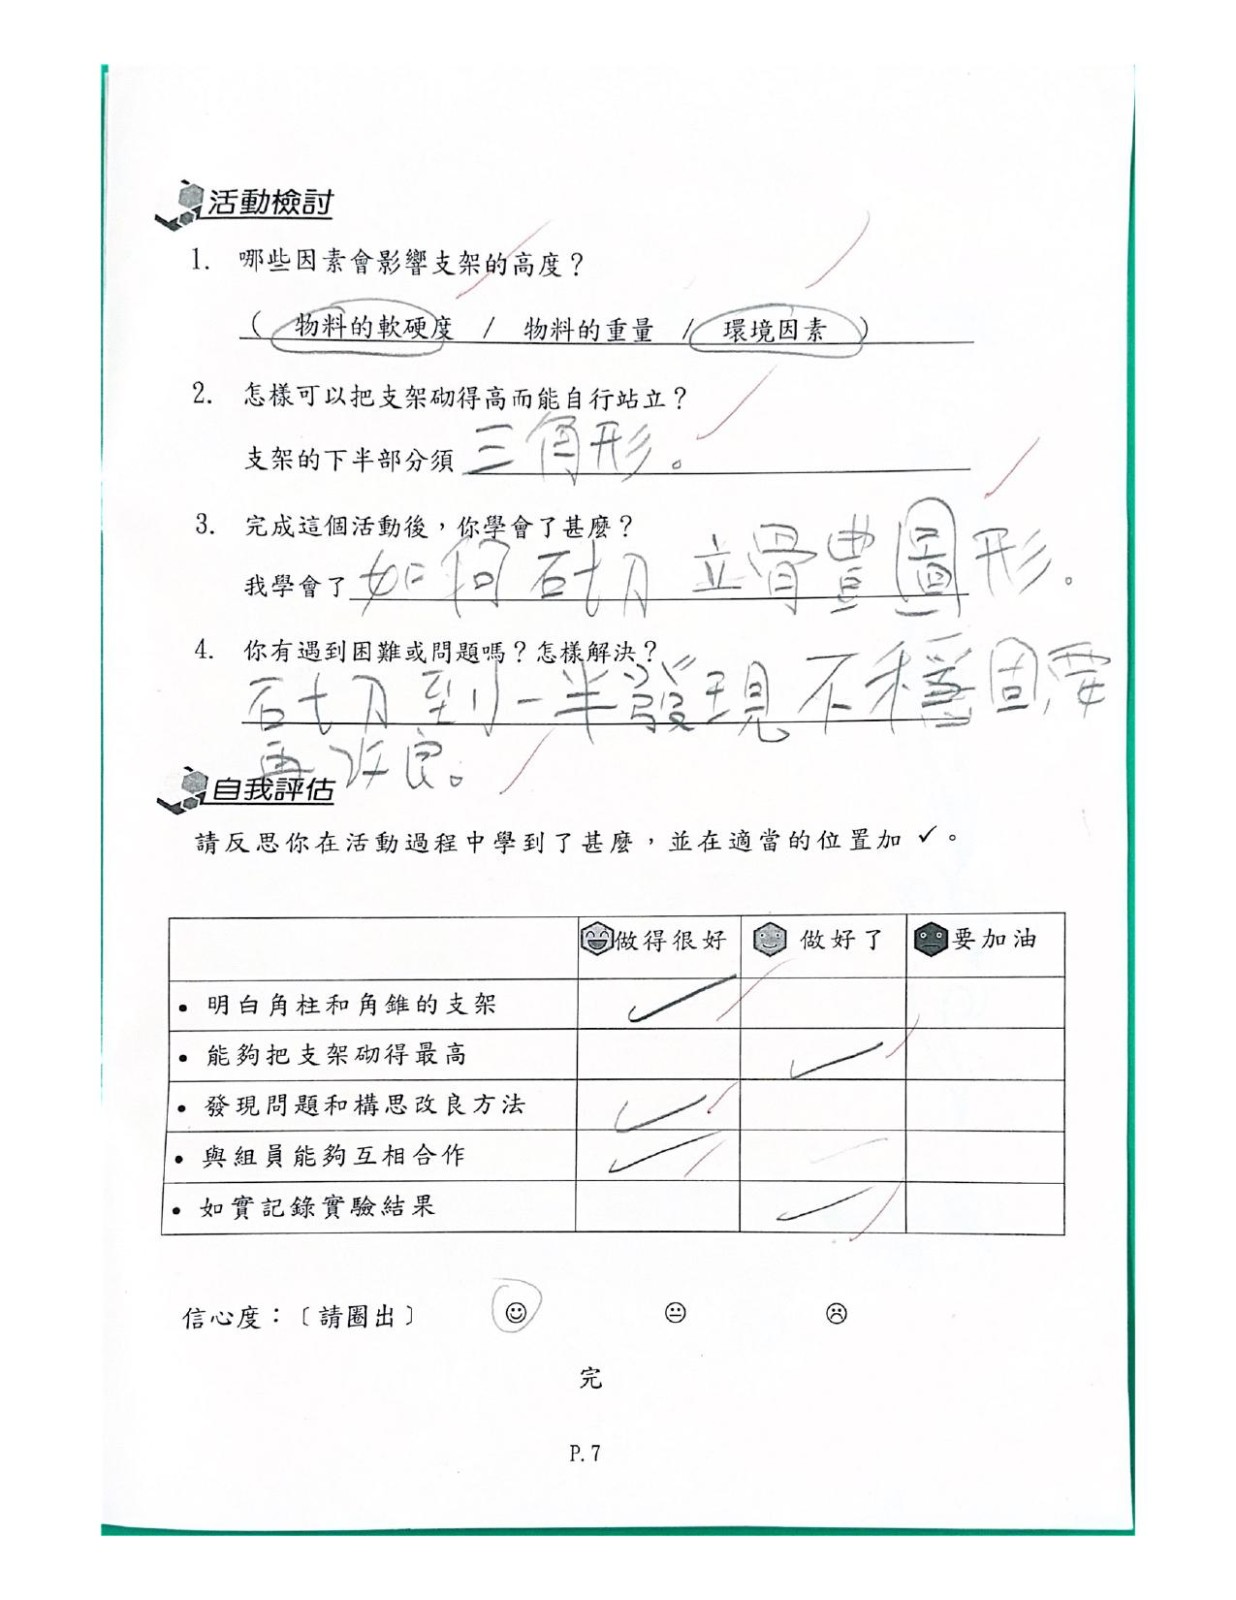 活動檢討
1. 哪些因素會影響支架的高度？
( 物料的軟硬度 / 物料的重量 / 環境因素 )
2. 怎樣可以把支架砌得高而能自行站立？
支架的下半部分須 三角形。
3. 完成這個活動後，你學會了甚麼？
我學會了 如何砌立體圖形。
4. 你有遇到困難或問題嗎？怎樣解決？
砌到一半發現不穩固要
再改良。
自我評估
請反思你在活動過程中學到了甚麼，並在適當的位置加 ✓。
做得很好 做好了 要加油
• 明白角柱和角錐的支架 ✓
• 能夠把支架砌得最高 ✓
• 發現問題和構思改良方法 ✓
• 與組員能夠互相合作 ✓
• 如實記錄實驗結果 ✓
信心度：〔請圈出〕 ☺ 😐 ☹
完
P.7